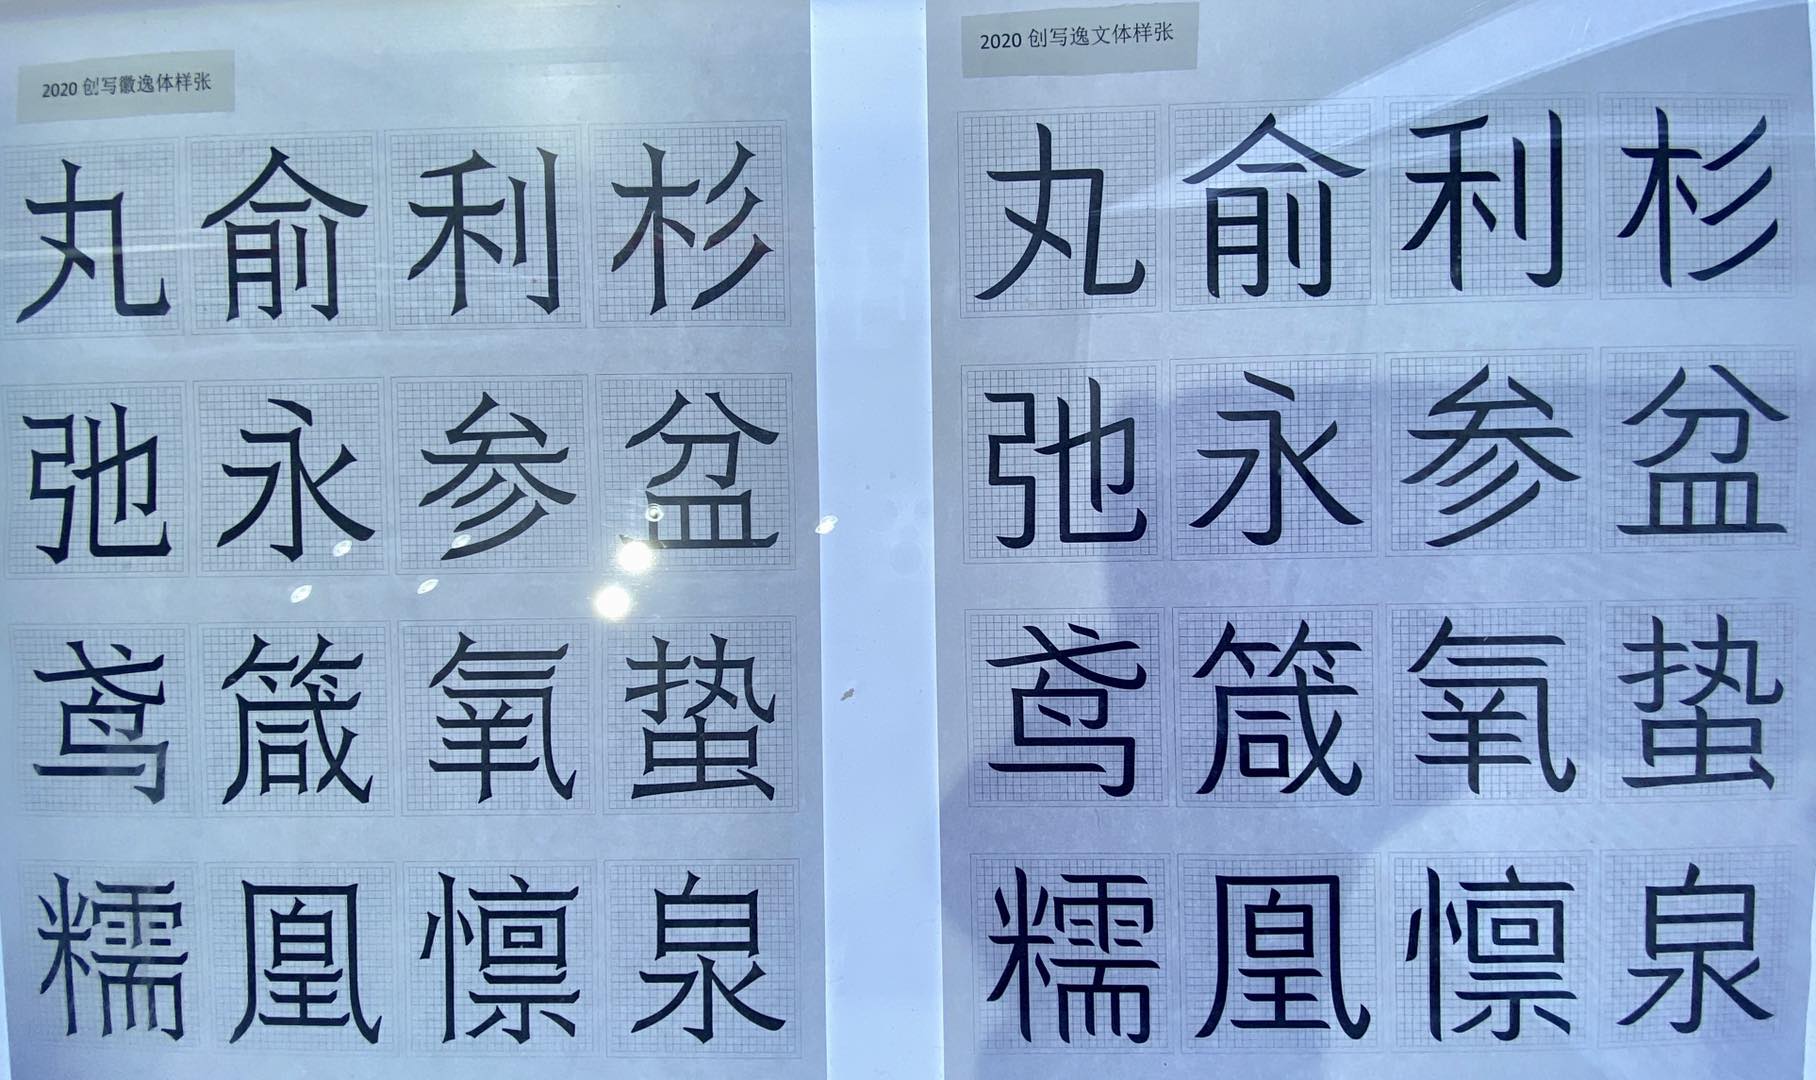 2020 创写徽逸体样张
丸俞利杉
弛永参盆
鸢箴氧蛰
糯凰懔泉
2020 创写逸文体样张
丸俞利杉
弛永参盆
鸢箴氧蛰
糯凰懔泉